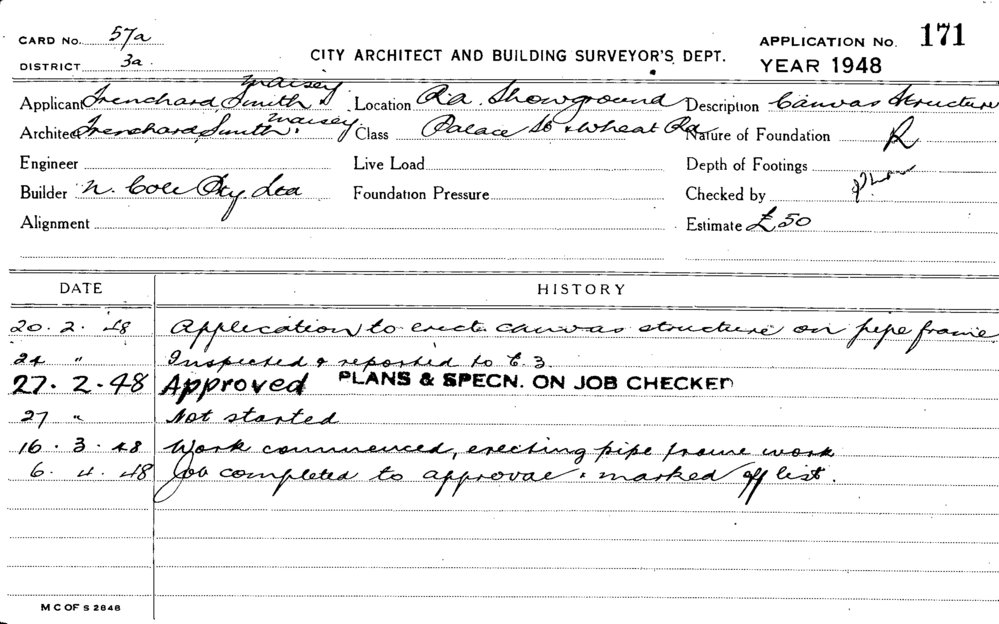 CARD No. 57a
DISTRICT 3a.
CITY ARCHITECT AND BUILDING SURVEYOR'S DEPT.
APPLICATION No. 171
YEAR 1948
Applicant Trenchard Smith & Maisey Location Ra. Showground Description Canvas Structure
Architect Trenchard Smith Maisey. Class Palace St & Wheat Rd Nature of Foundation R
Engineer Live Load Depth of Footings
Builder N. Cole Pty. Ltd Foundation Pressure Checked by
Alignment Estimate £50
DATE HISTORY
20. 2. 48 Application to erect canvas structure on pipe frame.
24 " Inspected & reported to C. 3.
27. 2. 48 Approved PLANS & SPECN. ON JOB CHECKED
27 " Not started
16. 3. 48 Work commenced, erecting pipe frame work
6. 4. 48 Job completed to approval & marked off list.
M C OF S 2648